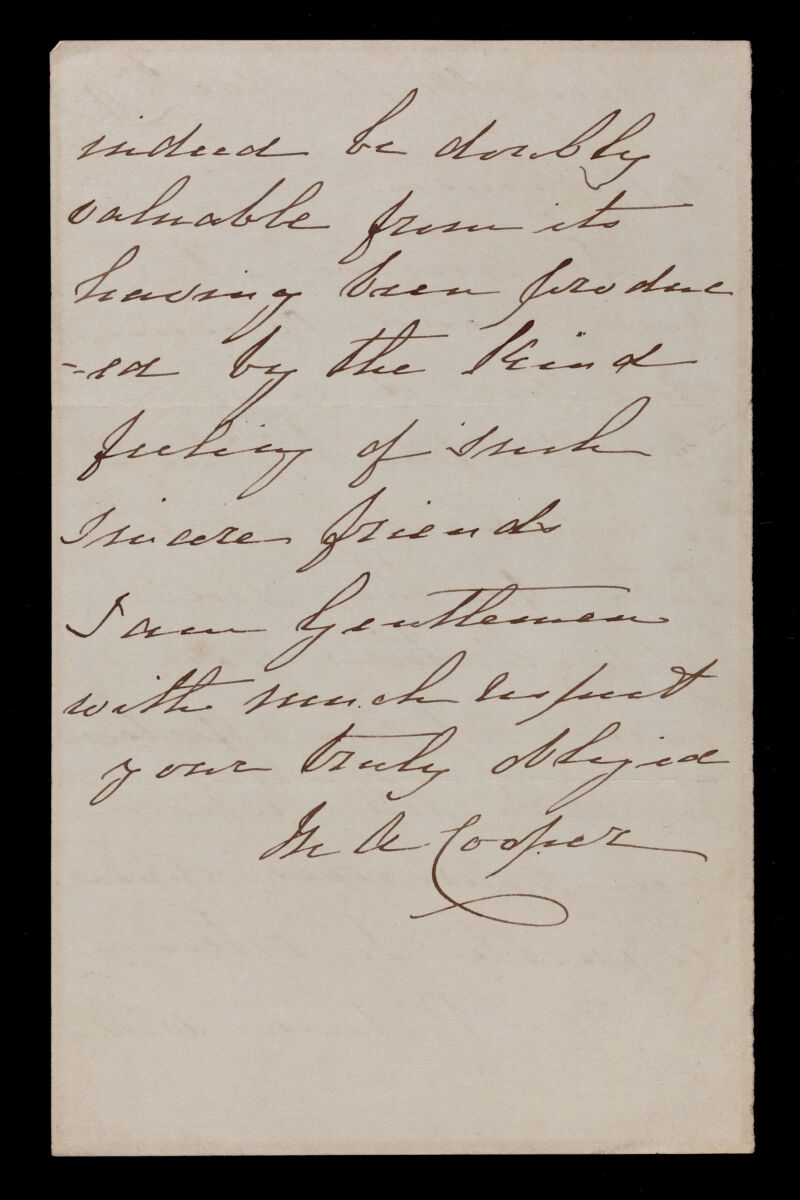 indeed be doubly
valuable from its
having been produc
=ed by the kind
feeling of such
sincere friends
I am Gentlemen
with much respect
your truly obliged
M A Cooper